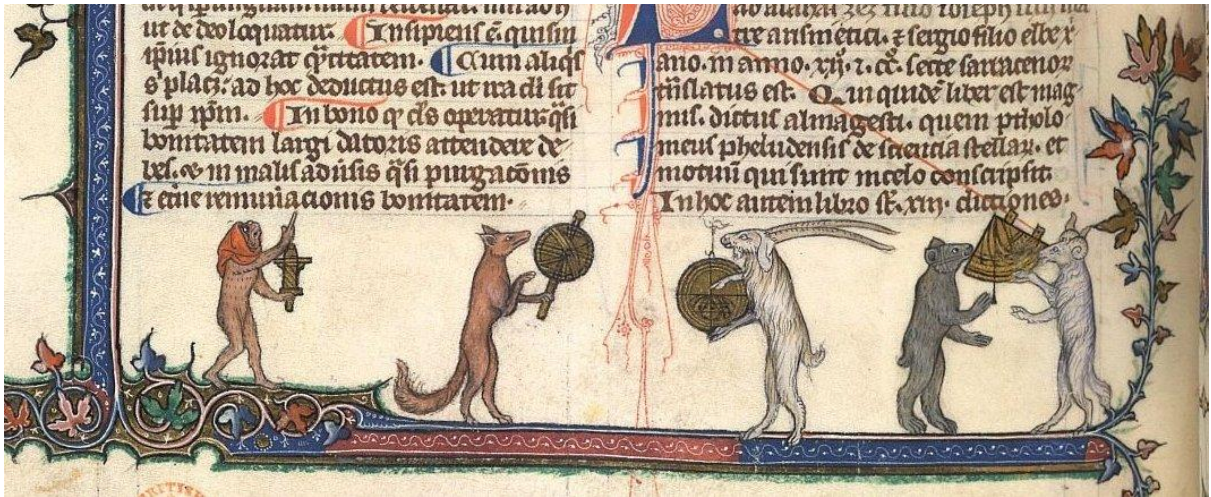 ut de deo loquatur. Insipiens ē. quisin
ipsius ignorat q̄titatem. Cum aliqͥs
s placꝫ: ad hoc deductus est. ut ira dī sit
sup ip̄m. In bono qͦ d̄s operatur. qͣsi
bonitatem largi datoris attendere de-
bes. ⁊ in malis adusis qͣsi purgac̄onis
⁊ et̄ne remuīacionis bonitatem.
tre arismetici. ⁊ sergio filio elbe
ano. in anno. xij. ⁊. cc. secte sarracenoꝝ
tn̄slatus est. qui quidē liber est mag
nus. dictus almagesti. quem ptholo
meus pheludensis de sciencia stellaꝝ. et
motuū qui sunt in celo conscripsit.
In hoc autem libro sͭ. xiij. dictiones.